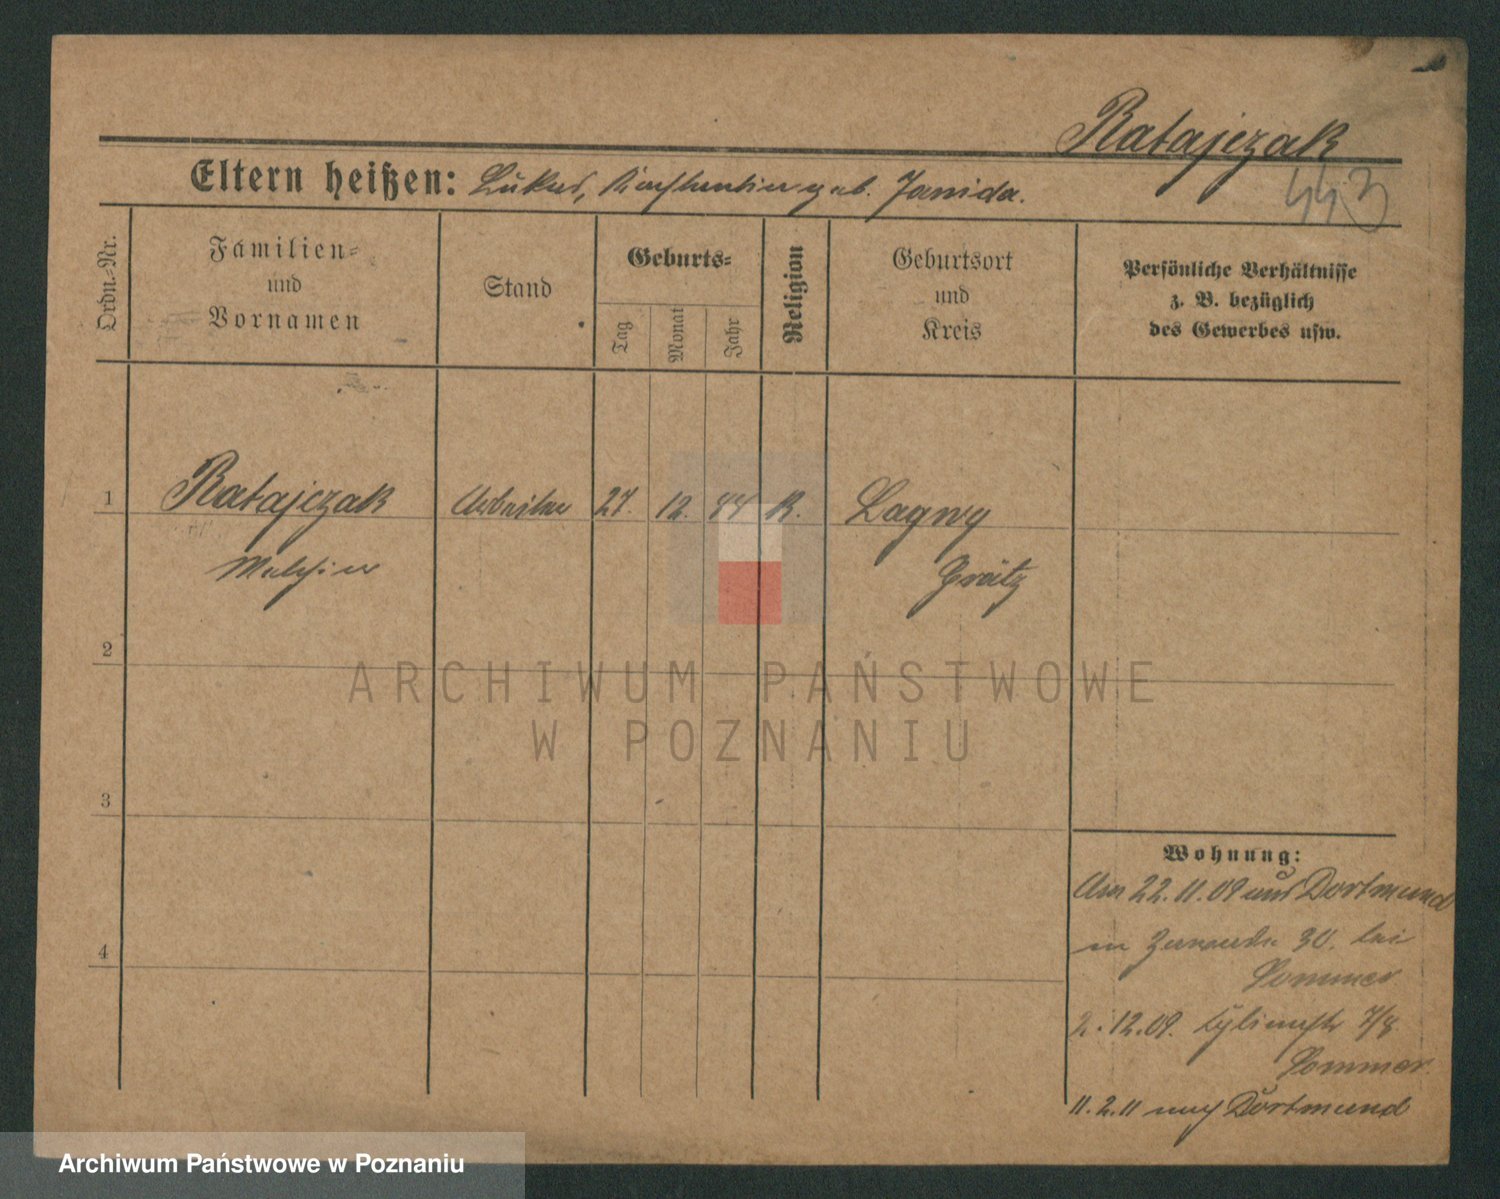 Ratajczak
443
Eltern heißen: Lukas, geb. Janida.
Ordn.-Nr.
Familien-
und
Vornamen
Stand
Geburts-
Tag
Monat
Jahr
Religion
Geburtsort
und
Kreis
Persönliche Verhältnisse
z. B. bezüglich
des Gewerbes usw.
1
Ratajczak Arbeiter 27. 12. 44 K. Lagwy
Melchior Grätz
2
ARCHIWUM PAŃSTWOWE
W POZNANIU
3
Wohnung:
Am 22.11.09 aus Dortmund
in 30. bei
Sommer
4
2.12.09. 7/8
Sommer.
11.2.11 nach Dortmund
Archiwum Państwowe w Poznaniu